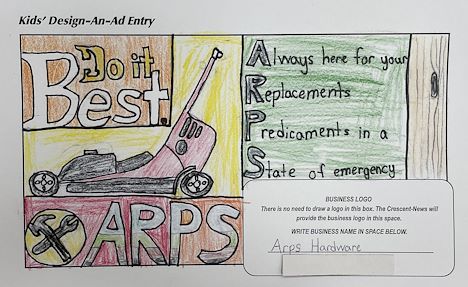 Kids' Design-An-Ad Entry
Do it
Best.
ARPS
Always here for your
Replacements
Predicaments in a
State of emergency
BUSINESS LOGO
There is no need to draw a logo in this box. The Crescent-News will
provide the business logo in this space.
WRITE BUSINESS NAME IN SPACE BELOW.
Arps Hardware